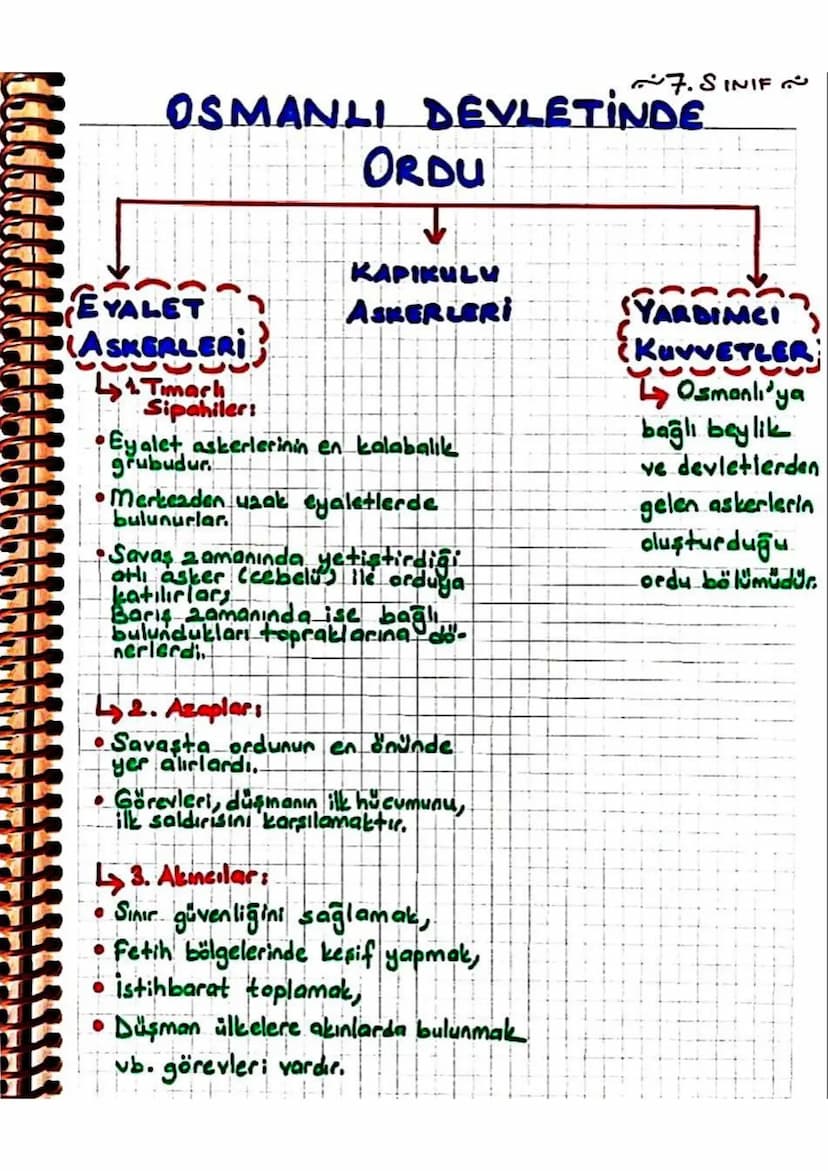 ~7. SINIF~
OSMANLI DEVLETİNDE
ORDU
EYALET
ASKERLERİ
KAPIKULU
ASKERLERİ
YARDIMCI
KUVVETLER
1. Tımarlı
Sipahiler:
• Eyalet askerlerinin en kalabalık
grubudur.
• Merkezden uzak eyaletlerde
bulunurlar.
• Savaş zamanında yetiştirdiği
atlı asker (cebelü) ile orduya
katılırlar,
Barış zamanında ise bağlı
bulundukları topraklarına dö-
nerlerdi.
2. Azaplar:
• Savaşta ordunun en önünde
yer alırlardı.
• Görevleri, düşmanın ilk hücumunu,
ilk saldırısını karşılamaktır.
3. Akıncılar:
• Sınır güvenliğini sağlamak,
• Fetih bölgelerinde keşif yapmak,
• İstihbarat toplamak,
• Düşman ülkelere akınlarda bulunmak
vb. görevleri vardır.
Osmanlı'ya
bağlı beylik
ve devletlerden
gelen askerlerin
oluşturduğu
ordu bölümüdür.